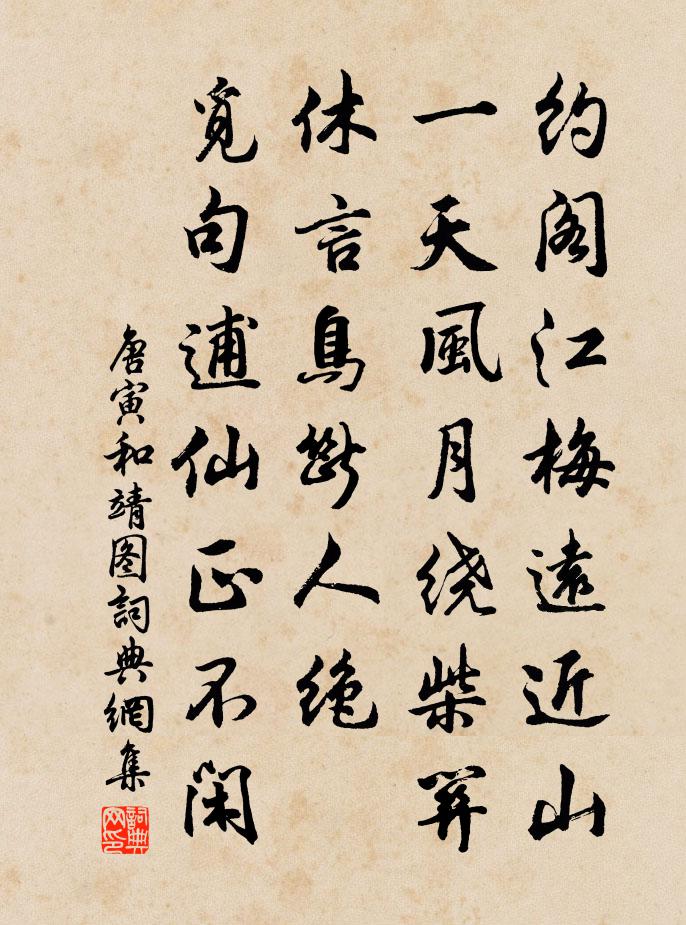 约阁江梅遠近山
一天風月绕柴關
休言鳥斷人绝
覓句逋仙正不闲
唐寅和靖图詞典網集
詞典网印